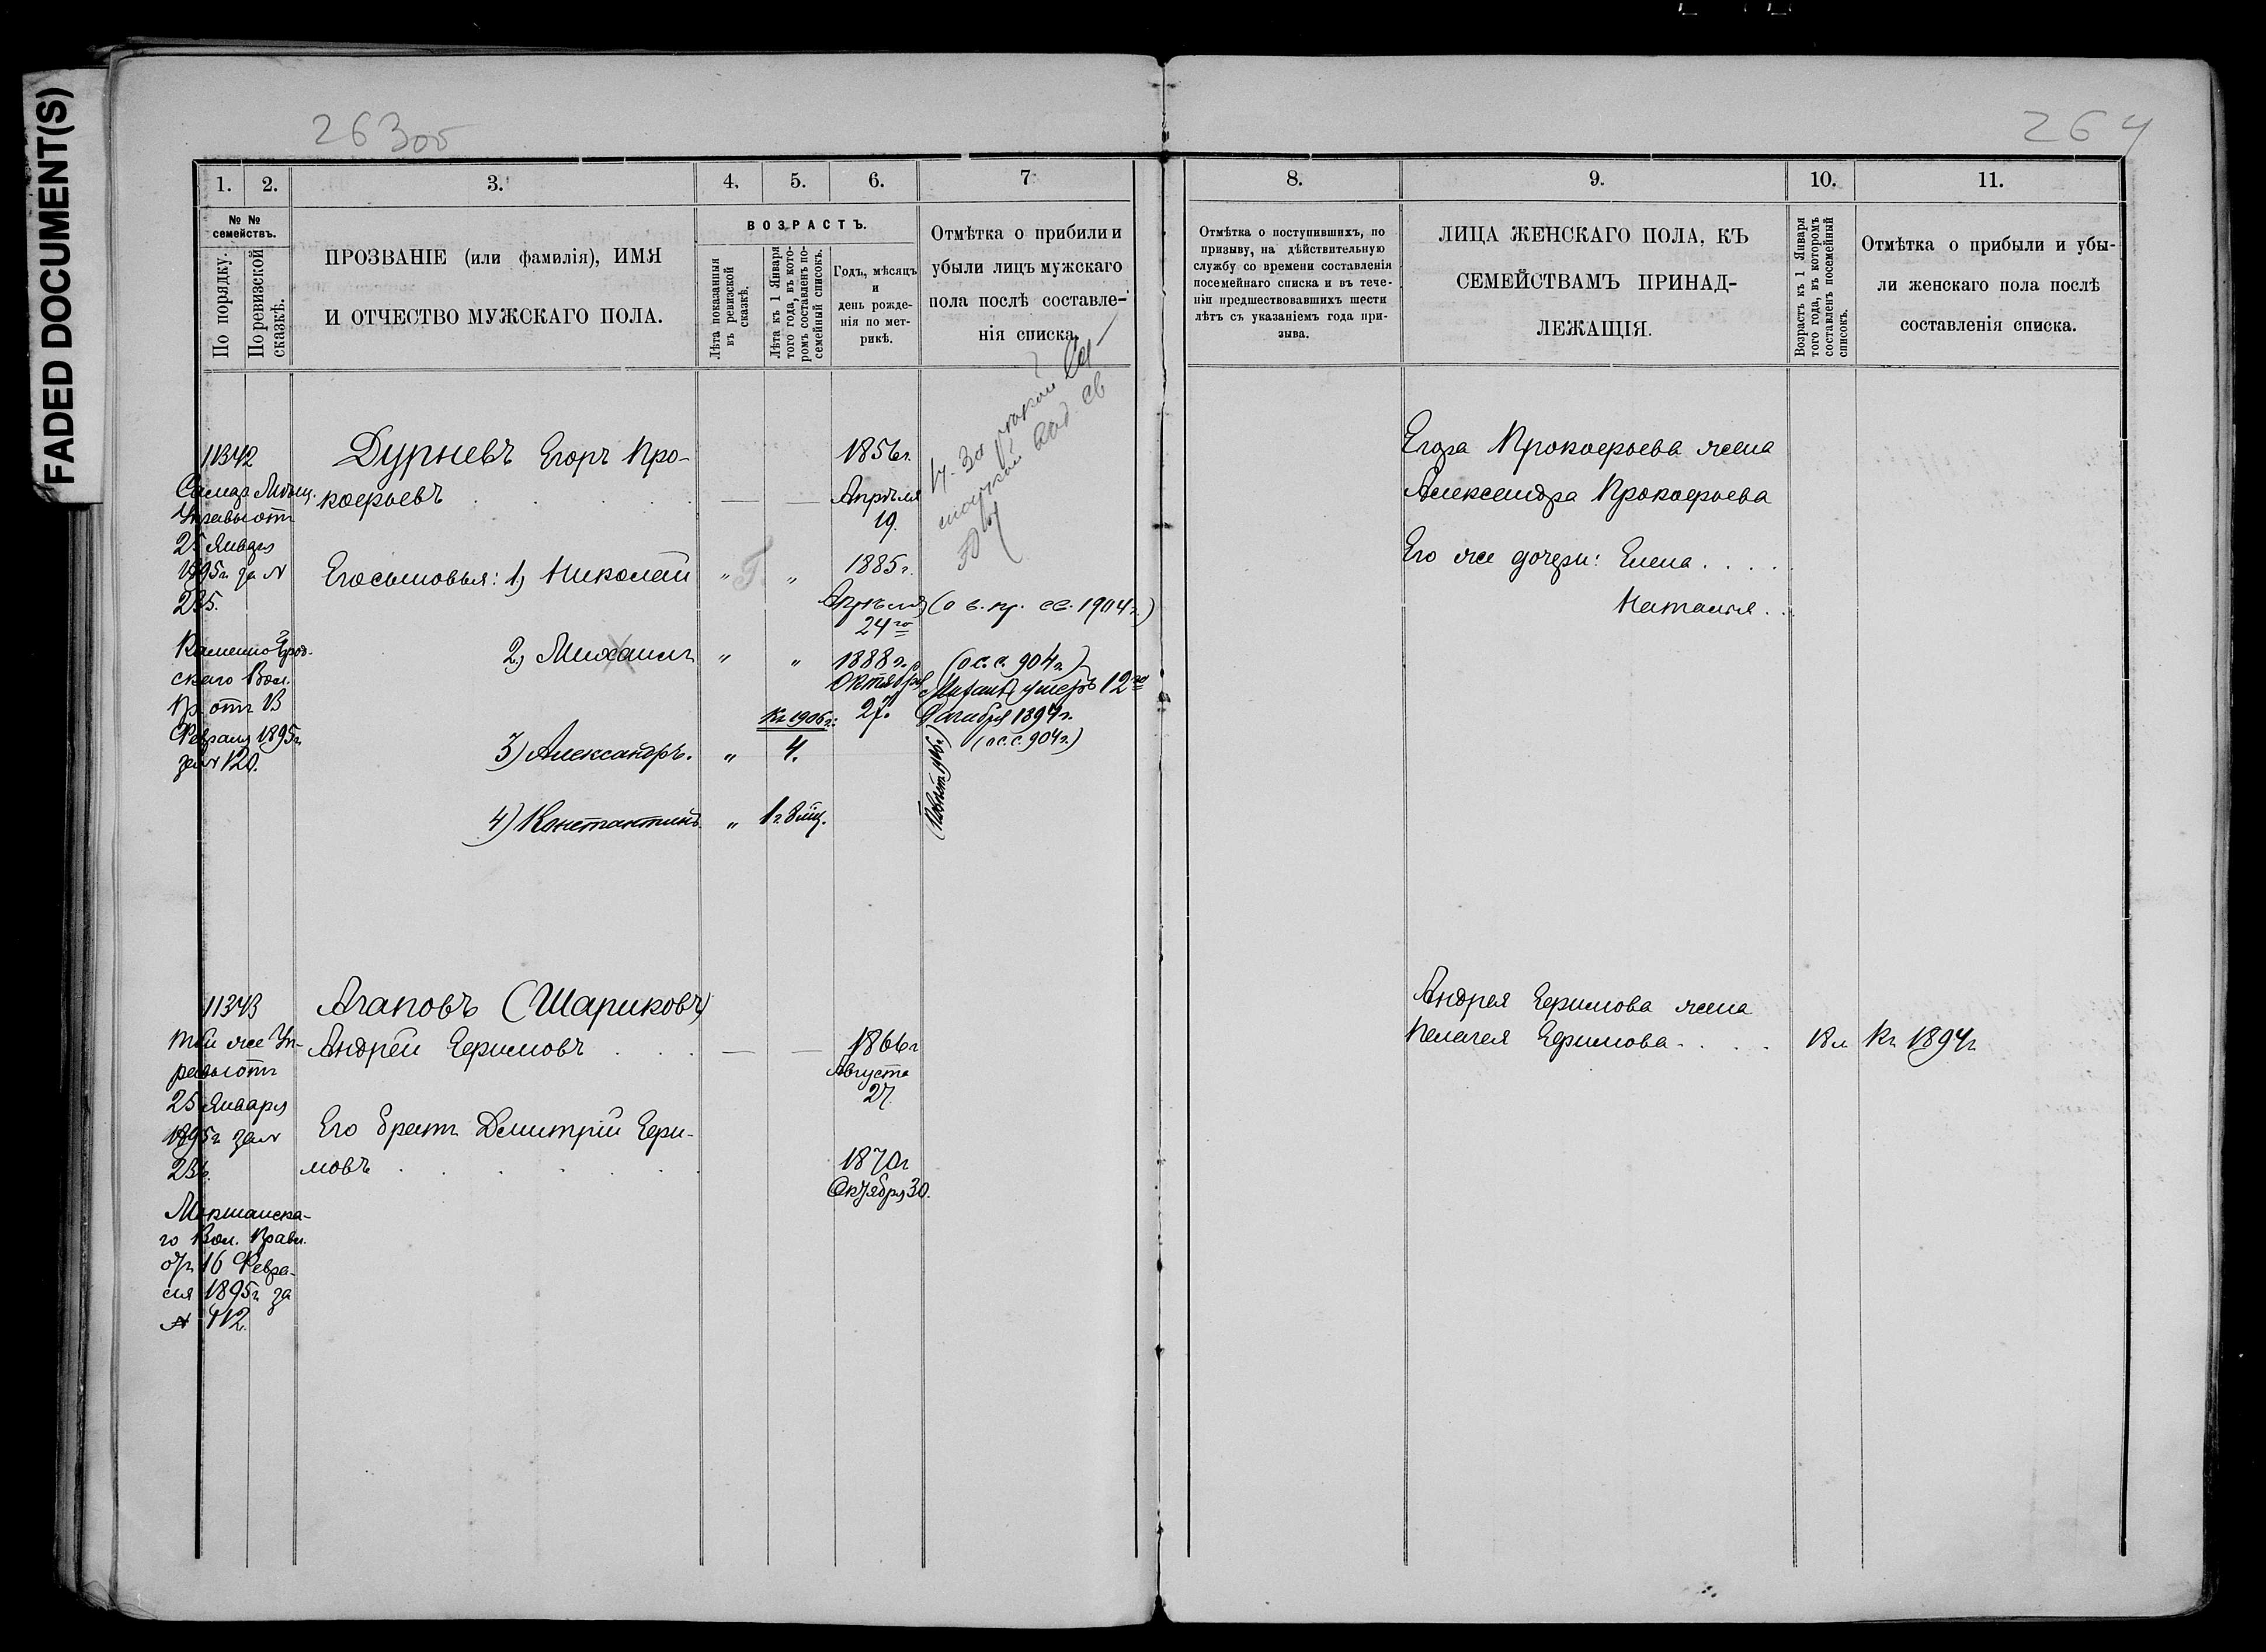 FADED DOCUMENT(S)
263об
264
1. 2. 3. 4. 5. 6. 7
№ №
семействъ.
По порядку.
По ревизской
сказкѣ.
ПРОЗВАНІЕ (или фамилія), ИМЯ
И ОТЧЕСТВО МУЖСКАГО ПОЛА.
ВОЗРАСТЪ.
Лѣта показанныя
въ ревизской
сказкѣ.
Лѣта къ 1 Января
того года, въ кото-
ромъ составленъ по-
семейный списокъ.
Годъ, мѣсяцъ
и
день рожде-
нія по мет-
рикѣ.
Отмѣтка о прибыли и
убыли лицъ мужскаго
пола послѣ составле-
нія списка.
11342
Самар. Мѣщ.
Управы отъ
25 Января
1895г. за №
235.
Каменно Брод-
скаго Вол.
Пр. отъ 13
Февраля 1895г.
за № 120.
Дурневъ Егоръ Про-
кофьевъ
1856г.
Апрѣля
19.
Его сыновья: 1) Николай " "
1885г.
Апрѣля (о в. пр. сс. 1904г.)
24го
2) Михаилъ " "
1888г. (о с. с. 904г.)
Октября
27.
Михаилъ умеръ 12го
Декабря 1894г.
Къ 1906г.:
3) Александръ. " 4.
(о с. с. 904г.)
4) Константинъ " 1г. 8 мѣц.
11343
Той же Уп-
равы отъ
25 Января
1895г. за №
236.
Мокшанска-
го Вол. Правл.
отъ 16 Февра-
ля 1895г. за
№ 412.
Агаповъ (Шариковъ)
Андрей Ефимовъ
1866г
Августа
27.
Его братъ Димитрій Ефи-
мовъ
1870г
Октября 30.
8. 9. 10. 11.
Отмѣтка о поступившихъ, по
призыву, на дѣйствительную
службу со времени составленія
посемейнаго списка и въ тече-
ніи предшествовавшихъ шести
лѣтъ съ указаніемъ года при-
зыва.
ЛИЦА ЖЕНСКАГО ПОЛА, КЪ
СЕМЕЙСТВАМЪ ПРИНАД-
ЛЕЖАЩІЯ.
Возрастъ къ 1 Января
того года, въ которомъ
составленъ посемейный
списокъ.
Отмѣтка о прибыли и убы-
ли женскаго пола послѣ
составленія списка.
Егора Прокофьева жена
Александра Прокофьева
Его же дочери: Елена
Наталья
Андрея Ефимова жена
Пелагея Ефимова 18 л Къ 1894г